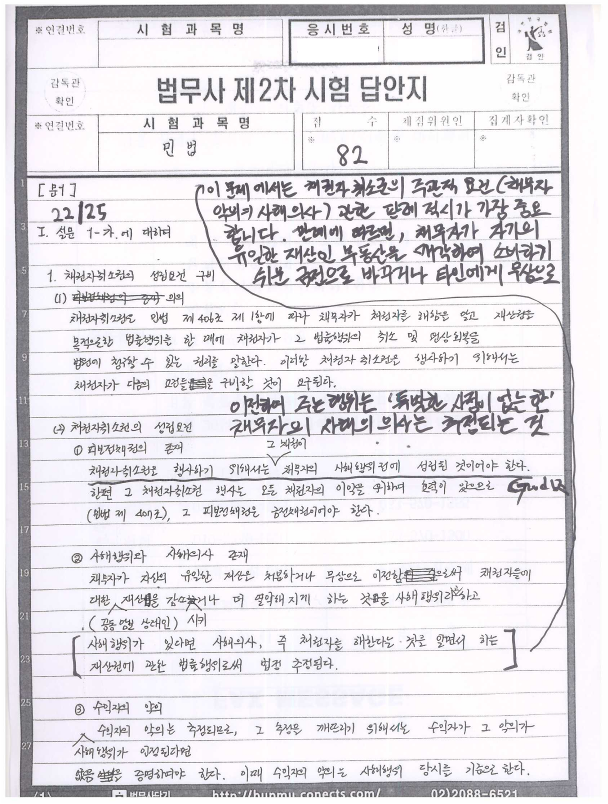 ※연결번호
시 험 과 목 명
응 시 번 호
성 명(한글)
검 인
감독관 확인
법무사 제2차 시험 답안지
감독관 확인
※연결번호
시 험 과 목 명
점 수
채점위원인
집계자확인
민법
※
82
※
※
[문1]
22/25
이 문제에서는 채권자취소권의 주관적 요건(채무자
악의의 사해의사) 관한 판례 적시가 가장 중요
합니다. 판례에 따르면, 채무자가 자기의
유일한 재산인 부동산을 매각하여 소비하기
쉬운 금전으로 바꾸거나 타인에게 무상으로
이전하여 주는 행위는 '특별한 사정이 없는 한'
채무자의 사해의 의사는 추정되는 것
I. 설문 1-가.에 대하여
1. 채권자취소권의 성립요건 구비
(1) 의의
채권자취소권은 민법 제406조 제1항에 따라 채무자가 채권자를 해함을 알고 재산권을
목적으로한 법률행위를 한 때에 채권자가 그 법률행위의 취소 및 원상회복을
법원에 청구할 수 있는 권리를 말한다. 이러한 채권자취소권을 행사하기 위해서는
채권자가 다음의 요건을 구비할 것이 요구된다.
(2) 채권자취소권의 성립요건
① 피보전채권의 존재
그 채권이
채권자취소권을 행사하기 위해서는 채무자의 사해행위 전에 성립된 것이어야 한다.
한편 그 채권자취소권 행사는 모든 채권자의 이익을 위하여 효력이 있으므로
(민법 제407조), 그 피보전채권은 금전채권이어야 한다.
② 사해행위와 사해의사 존재
채무자가 자신의 유일한 재산을 처분하거나 무상으로 이전함으로써 채권자들에
대한 재산을 감소거나 더 열악해지게 하는 것을 사해행위라하고
(공동 상대인) 시키
사해행위가 있다면 사해의사, 즉 채권자를 해한다는 것을 알면서 하는
재산권에 관한 법률행위로써 법정 추정된다.
③ 수익자의 악의
수익자의 악의는 추정되므로, 그 추정을 깨뜨리기 위해서는 수익자가 그 악의가
사해행위가 인정된다면
없음을 증명하여야 한다. 이때 수익자의 악의는 사해행위 당시를 기준으로 한다.
(1)
법무사단기
http://bupmu.conects.com/
02)2088-6521